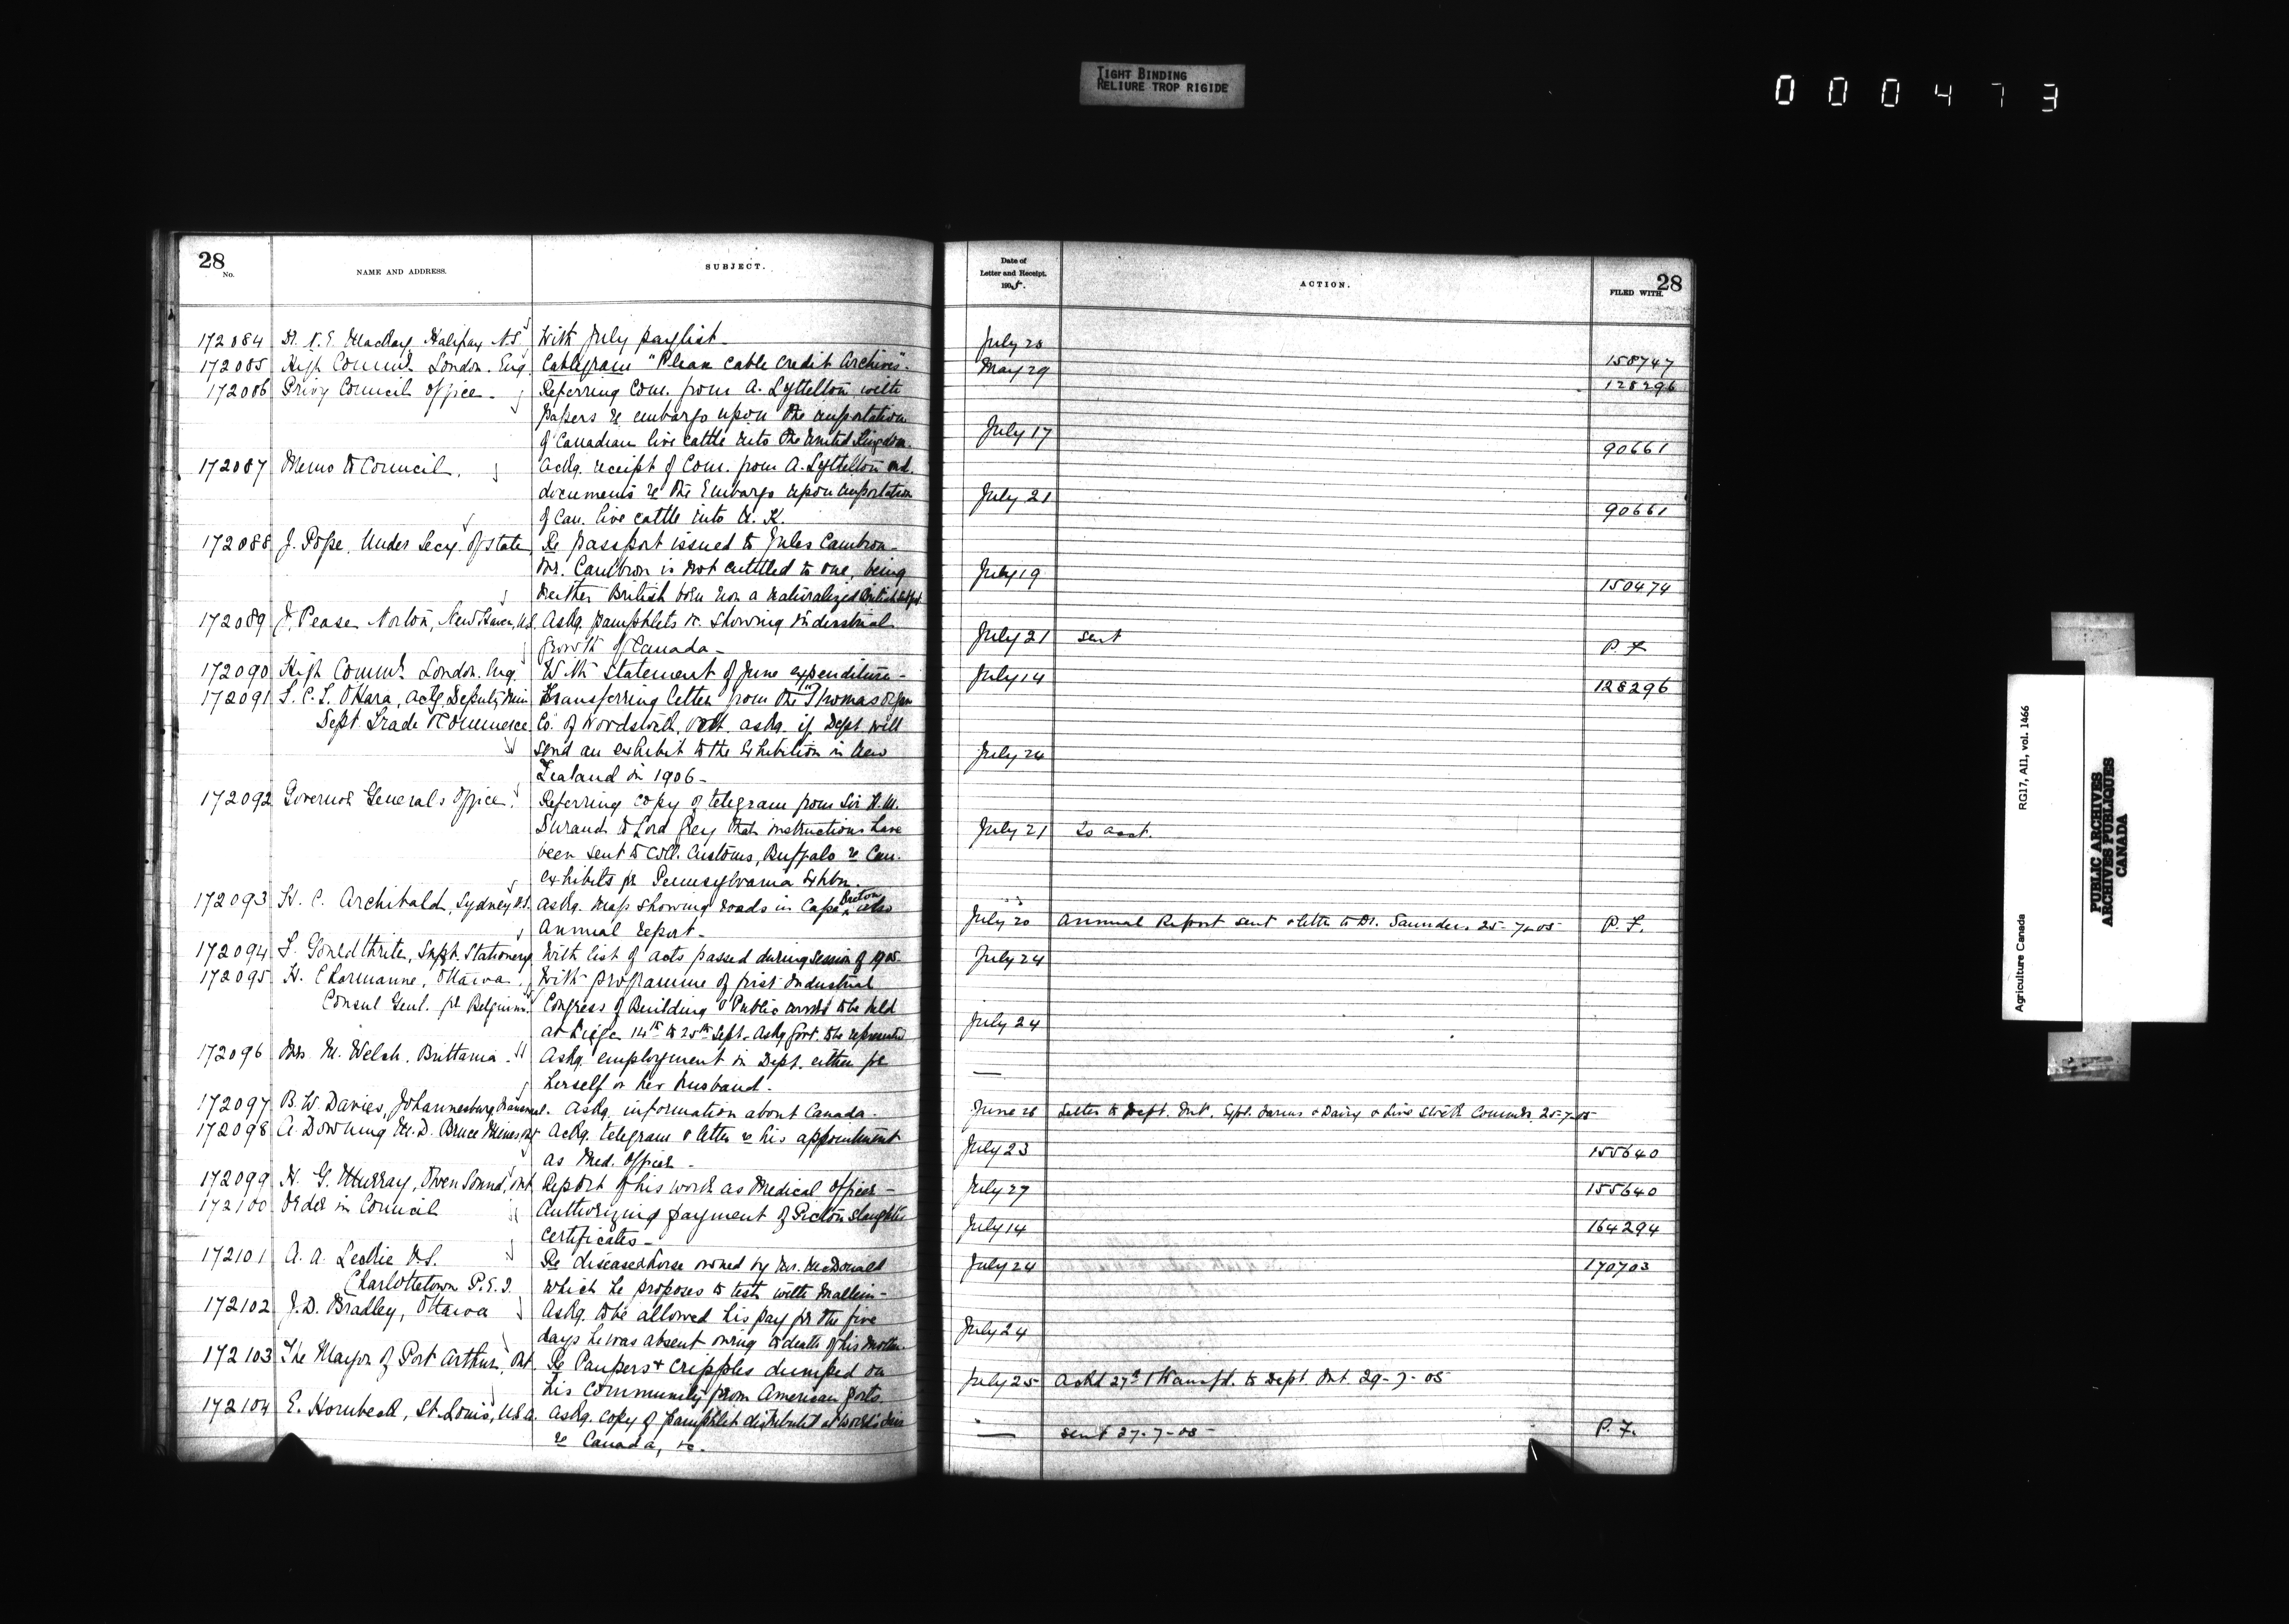 TIGHT BINDING
RELIURE TROP RIGIDE
000473
28
No.
NAME AND ADDRESS.
SUBJECT.
172084 N. E. MacKay, Halifax N.S. With July paylist
172085 High Commr. London. Eng. Cablegram "Please cable credit Archives".
172086 Privy Council Office. Referring Com. from A. Lyttelton with
papers re embargo upon the importation
of Canadian live cattle into the United Kingdom.
172087 Memo to Council. Ackg. receipt of Com. from A. Lyttelton and
documents re the Embargo upon importation
of Can. live cattle into U. K.
172088 J. Pope, Under Secy. of State Re passport issued to Jules Cambron
Mr. Cambron is not entitled to one, being
neither British born nor a naturalized British subject
172089 J. Pease Norton, New Haven, U.S. Askg. pamphlets &c. showing industrial
growth of Canada
172090 High Commr. London. Eng. With statement of June expenditure
172091 F. C. T. O'Hara, Actg. Deputy Min Transferring letter from the Thomas
Dept Trade & Commerce Co. of Woodstock, Ont. askg. if Dept. will
send an exhibit to the Exhibition in New
Zealand in 1906
172092 Governor General's Office. Referring copy of telegram from Sir H. M.
Durand to Lord Grey that instructions have
been sent to Coll. Customs, Buffalo re Can.
exhibits for Pennsylvania Exhbn.
172093 H. C. Archibald, Sydney N.S. Askg. map showing roads in Cape Breton also
Annual report
172094 F. Gouldthrite, Supt. Stationery With list of acts passed during session of 1905
172095 H. Ottawa With programme of first Industrial
Consul Genl. for Belgium. Congress of Building & Public works to be held
at Liege 14th to 25th Sept. Askg Govt. to be represented
172096 Mrs. M. Welch, Brittania. Askg. employment in Dept. either for
herself or her husband.
172097 B. W. Davies, Johannesburg, Transvaal. Askg. information about Canada.
172098 A. Downing M.D. Bruce Mines, Ont Ackg. telegram & letter re his appointment
as Med. Officer
172099 H. G. Murray, Owen Sound, Ont Report of his work as Medical Officer
172100 Order in Council Authorizing payment of Pictou slaughter
certificates
172101 A. A. Leckie V.S. Re diseased horse owned by Mr. McDonald
Charlottetown P.E.I. which he proposes to test with mallein
172102 J. D. Bradley, Ottawa Askg. to be allowed his pay for the five
days he was absent owing to death of his mother.
172103 The Mayor of Port Arthur, Ont. Re Paupers & cripples dumped on
his community from American ports.
172104 E. Hornbeck, St. Louis, U.S.A. Askg. copy of pamphlet distributed at World's Fair
re Canada, &c.
Date of
Letter and Receipt.
1905.
ACTION.
28
FILED WITH.
July 20
158747
May 29
128296
July 17
90661
July 21
90661
July 19
150474
July 21 sent P. F.
July 14
128296
July 24
July 21 To acct.
July 20 Annual Report sent & letter to Dr. Saunders 25-7-05 P. F.
July 24
July 24
—
June 26 Letter to Dept. Int. Expl. Farms & Dairy & Live Stock Commrs. 25-7-05
July 23 155640
July 27 155640
July 14 164294
July 24 170703
July 24
July 25 Ackd 27th & Transfd. to Dept. Int. 29-7-05
— sent 27-7-05 P. F.
Agriculture Canada RG17, AII, vol. 1466
PUBLIC ARCHIVES
ARCHIVES PUBLIQUES
CANADA